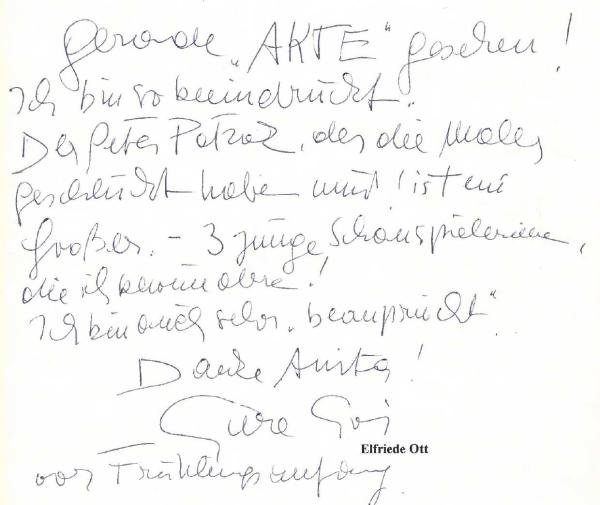 Gerade „AKTE“ gesehen!
Ich bin so beeindruckt.
Der Peter , der die
haben ist ein
Großer. – 3 junge Schauspielerinnen,
die ich bewundere!
Ich bin auch sehr „beansprucht“
Danke Anita!
Elfriede Ott
vor Frühlingsanfang